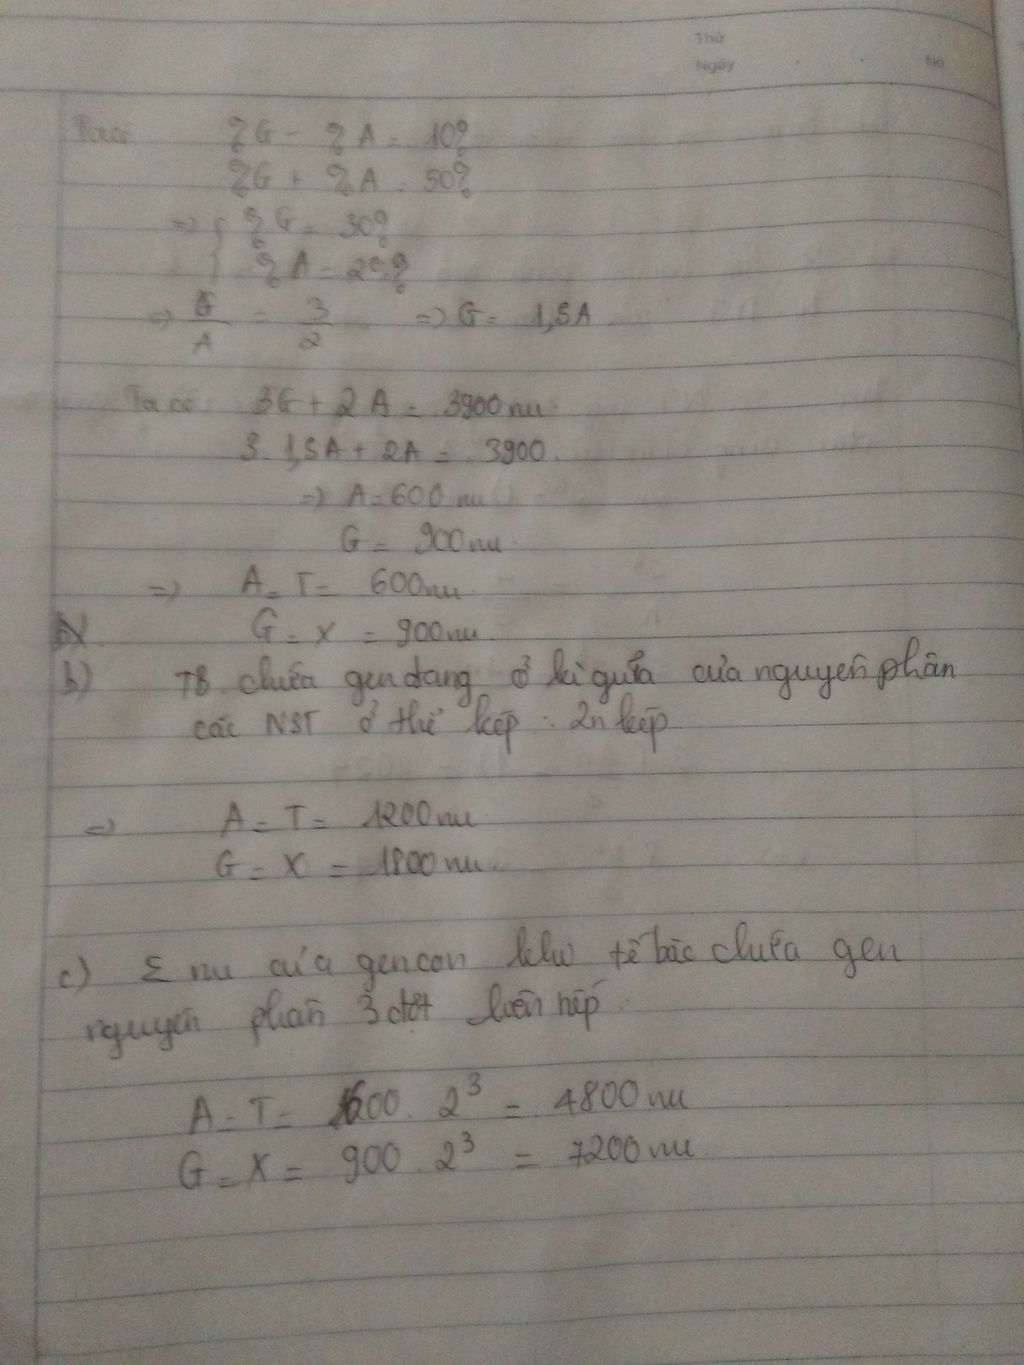 Thứ
Ngày
No.
Ta có %G - %A = 10%
%G + %A = 50%
=> { %G = 30%
%A = 20%
=> G/A = 3/2 => G = 1,5A
Ta có: 3G + 2A = 3900 nu
3. 1,5A + 2A = 3900
=> A = 600 nu
G = 900 nu
=> A = T = 600 nu
G = X = 900 nu
b) TB chứa gen đang ở kì giữa của nguyên phân
các NST ở thể kép : 2n kép
=> A = T = 1200 nu
G = X = 1800 nu
c) Σ nu của gen con khi tế bào chứa gen
nguyên phân 3 đợt liên tiếp
A = T = 600 . 2³ = 4800 nu
G = X = 900 . 2³ = 7200 nu